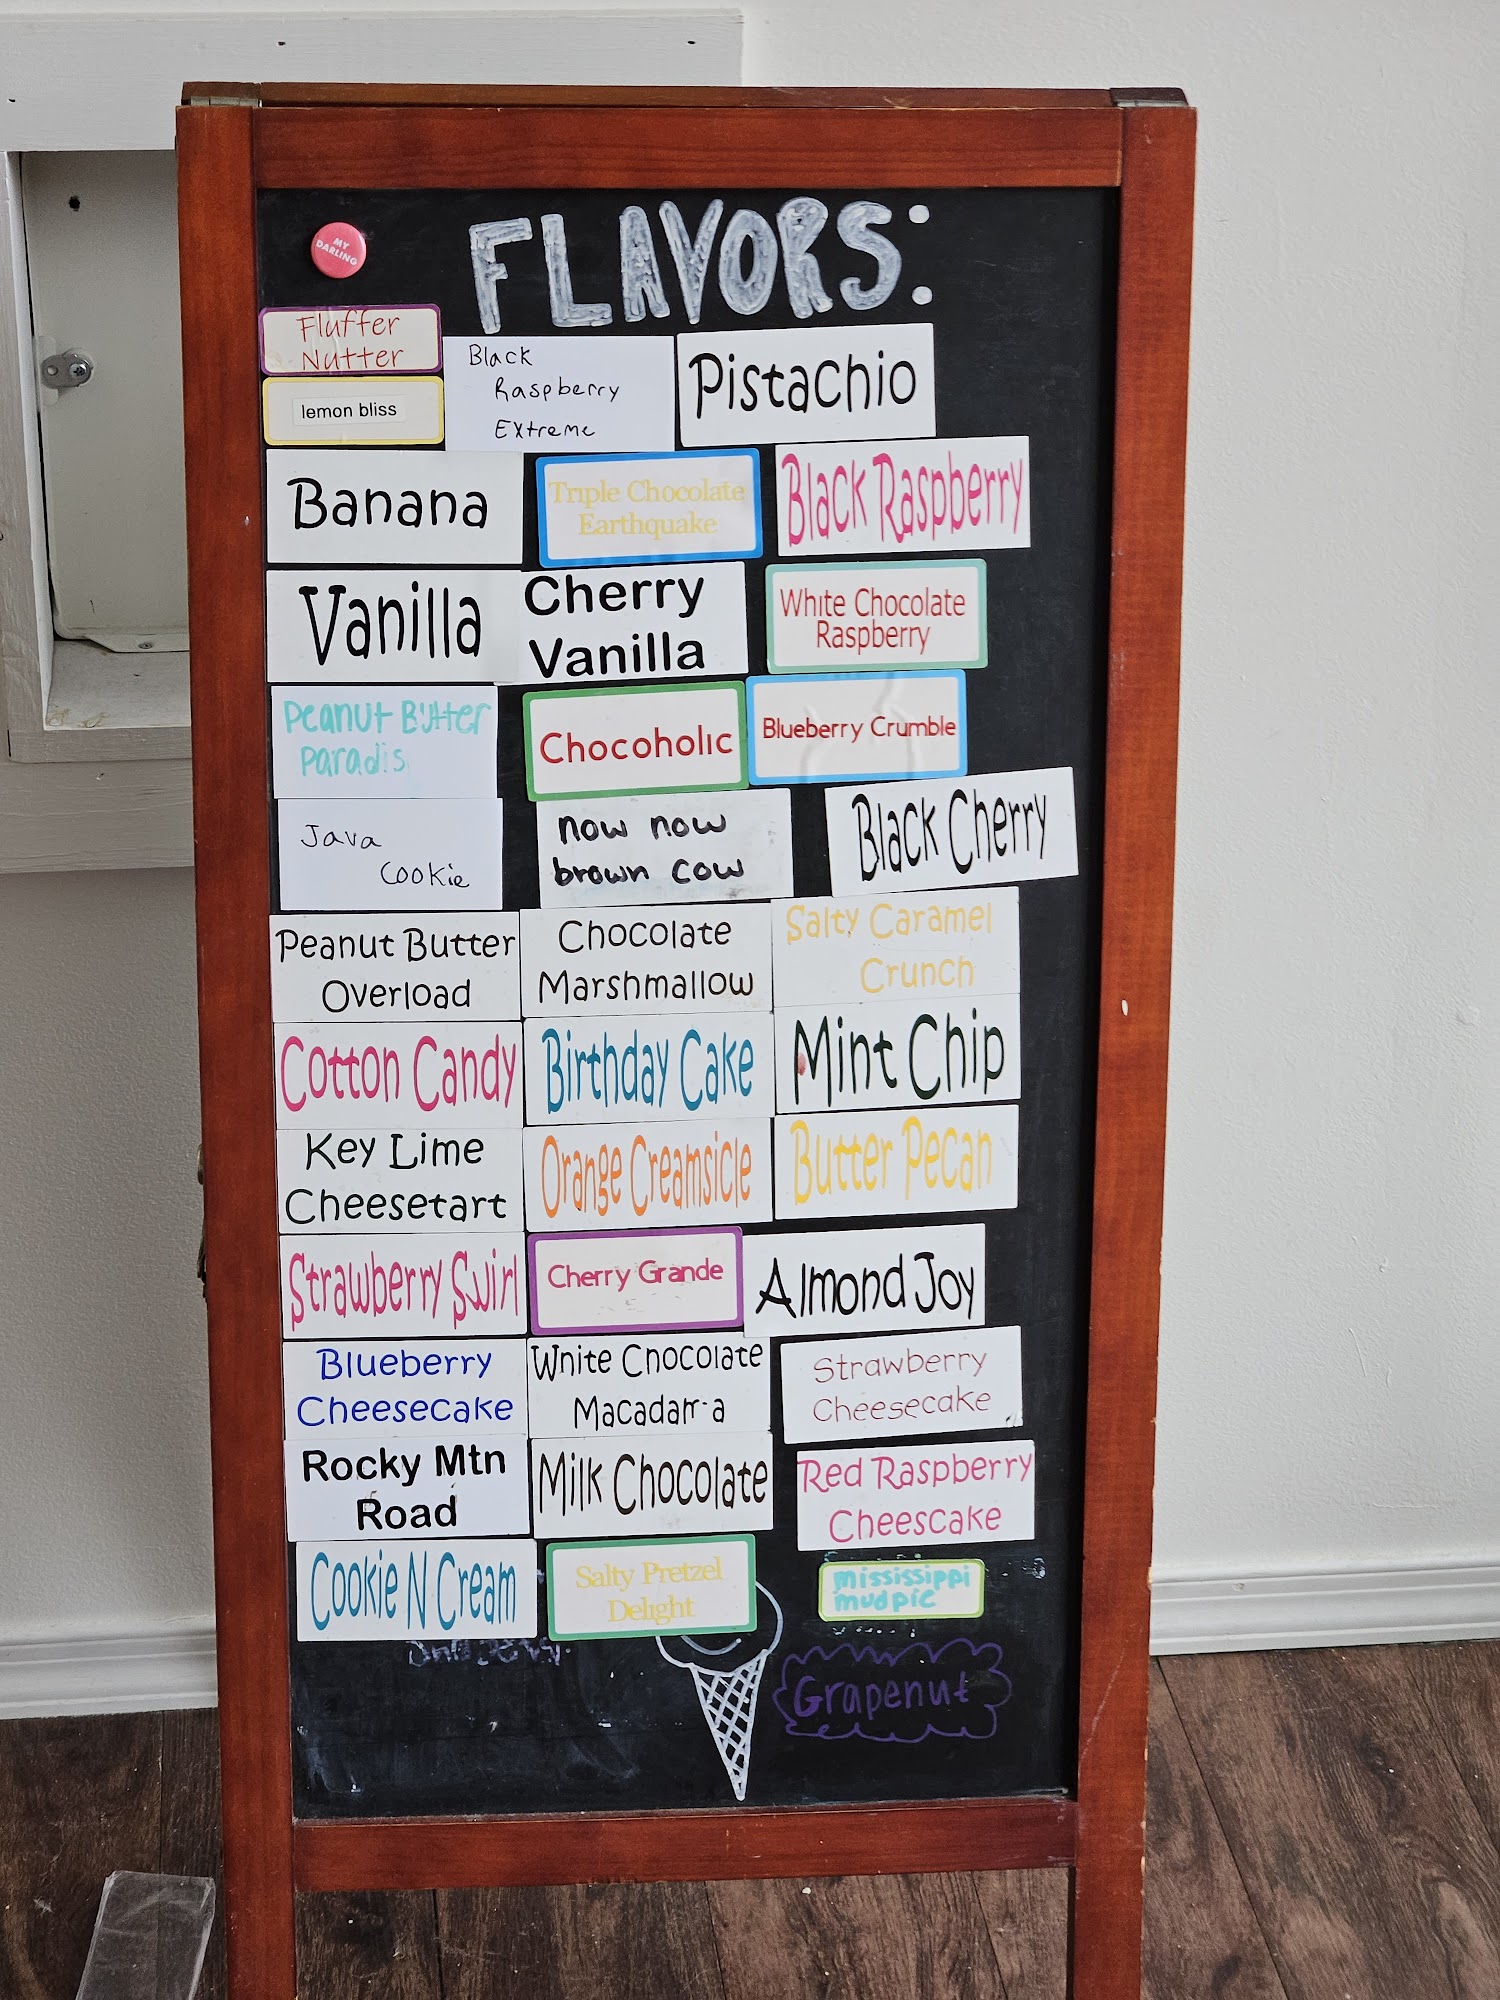 FLAVORS:
MY
DARLING
Fluffer
Nutter
lemon bliss
Black
Raspberry
Extreme
Pistachio
Banana
Triple Chocolate
Earthquake
Black Raspberry
Vanilla
Cherry
Vanilla
White Chocolate
Raspberry
Peanut Butter
Paradis
Chocoholic
Blueberry Crumble
Java
Cookie
now now
brown cow
Black Cherry
Peanut Butter
Overload
Chocolate
Marshmallow
Salty Caramel
Crunch
Cotton Candy
Birthday Cake
Mint Chip
Key Lime
Cheesetart
Orange Creamsicle
Butter Pecan
Strawberry Swirl
Cherry Grande
Almond Joy
Blueberry
Cheesecake
White Chocolate
Macadam a
Strawberry
Cheesecake
Rocky Mtn
Road
Milk Chocolate
Red Raspberry
Cheescake
Cookie N Cream
Salty Pretzel
Delight
mississippi
mudpie
Grapenut